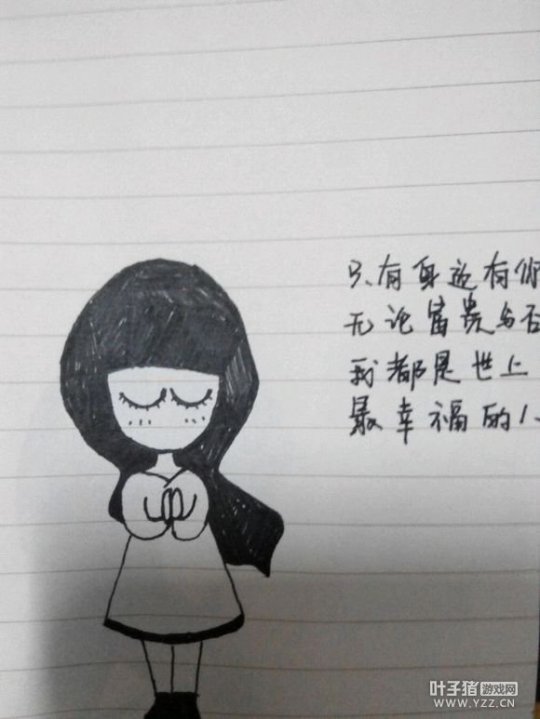 只有身边有你
无论富贵与否
我都是世上
最幸福的人
叶子猪 游戏网
WWW.YZZ.CN